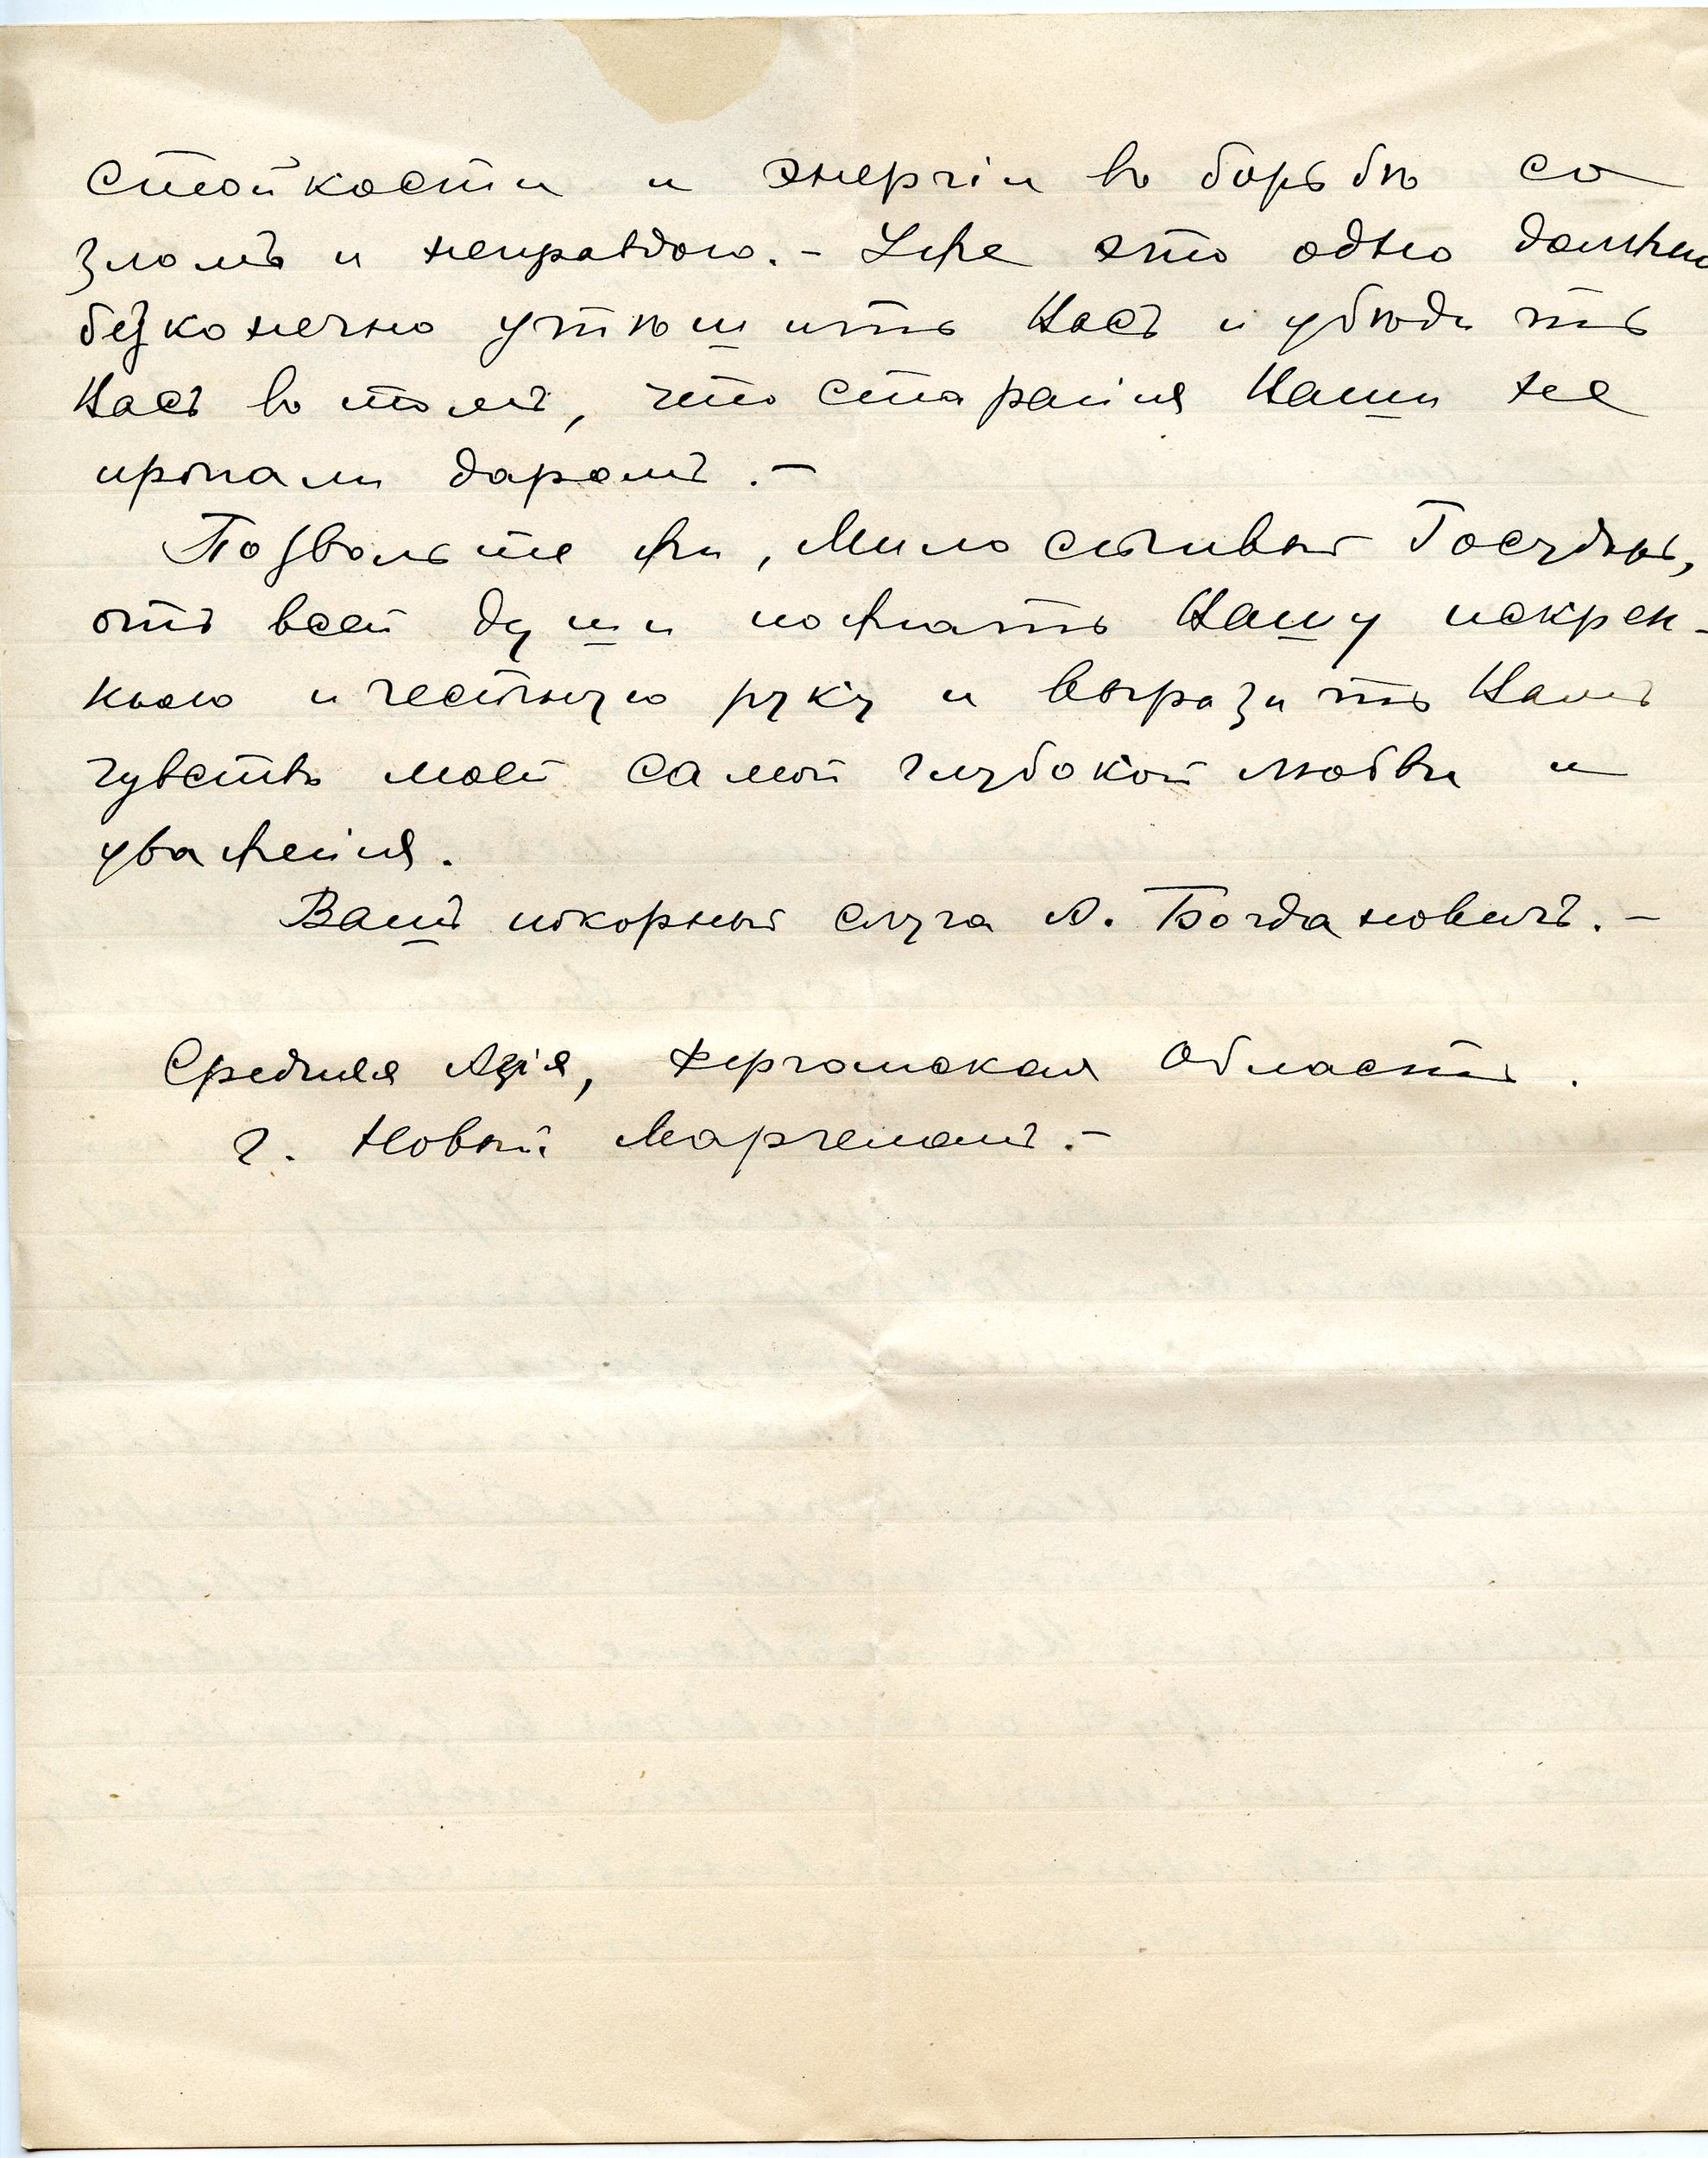 стойкости и энергіи въ борьбѣ со
зломъ и неправдою. – Уже это одно должно
безконечно утѣшить Васъ и убѣдить
Васъ въ томъ, что старанія Ваши не
пропали даромъ. –
Позвольте же, Милостивый Государь,
отъ всей души пожать Вашу искрен-
нюю и честную руку и выразить Вамъ
чувство моей самой глубокой любви и
уваженія.
Вашъ покорный слуга А. Богдановичъ. –
Средняя Азія, Ферганская Область.
г. Новый Маргеланъ. –